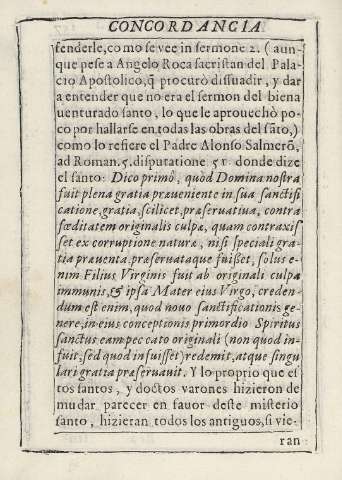 CONCORDANCIA
fenderle, como se vee in sermone 2. (aun-
que pese a Angelo Roca sacristan del Pala-
cio Apostolico, q̃ procurò dissuadir, y dar
a entender que no era el sermon del biena
uenturado santo, lo que le aprouechò po-
co por hallarse en todas las obras del sãto,)
como lo refiere el Padre Alonso Salmerõ,
ad Roman. 5. disputatione 51. donde dize
el santo: Dico primò, quòd Domina nostra
fuit plena gratia præueniente in sua sanctifi
catione, gratia, scilicet, præseruatiua, contra
fœditatem originalis culpæ, quam contraxis
set ex corruptione naturæ, nisi speciali gra-
tia præuenta, præseruataque fuisset, solus e-
nim Filius Virginis fuit ab originali culpa
immunis, & ipsa Mater eius Virgo, creden-
dum est enim, quod nouo sanctificationis ge-
nere, in eius conceptionis primordio Spiritus
sanctus eam peccato originali (non quod in-
fuit, sed quod infuisset) redemit, atque singu
lari gratia præseruauit. Y lo proprio que es
tos santos, y doctos varones hizieron de
mudar parecer en fauor deste misterio
santo, hizieran todos los antiguos, si vie-
ran